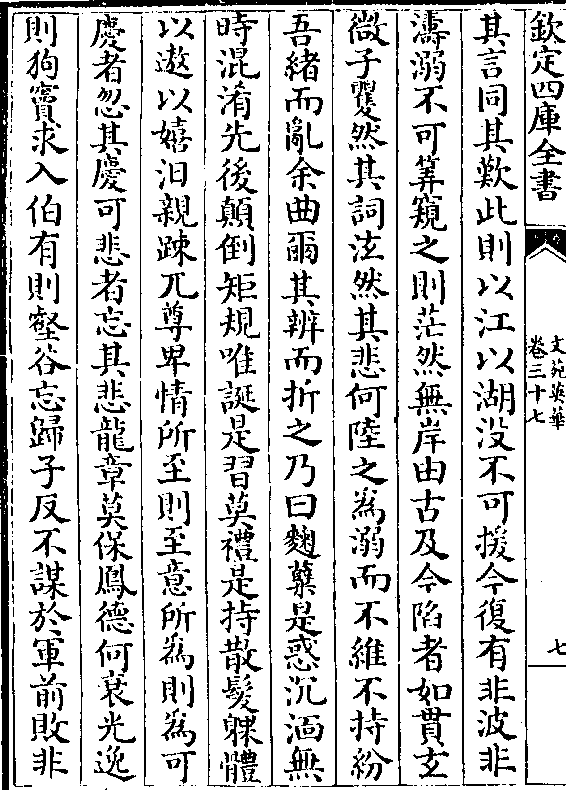 欽定四庫全書
文苑英華
卷三十七
七
其言同其歎此則以江以湖没不可援今復有非波非
濤溺不可筭窺之則茫然無岸由古及今陷者如貫玄
微子矍然其詞泫然其悲何陸之為溺而不維不持紛
吾緒而亂余曲爾其辨而折之乃曰麴蘖是惑沉湎無
時混淆先後顛倒矩規唯誕是習莫禮是持散髮躶體
以遨以嬉汩親踈兀尊卑情所至則至意所為則為可
慶者忽其慶可悲者忘其悲龍章莫保鳳德何衰光逸
則狗竇求入伯有則壑谷忘歸子反不謀於軍前敗非